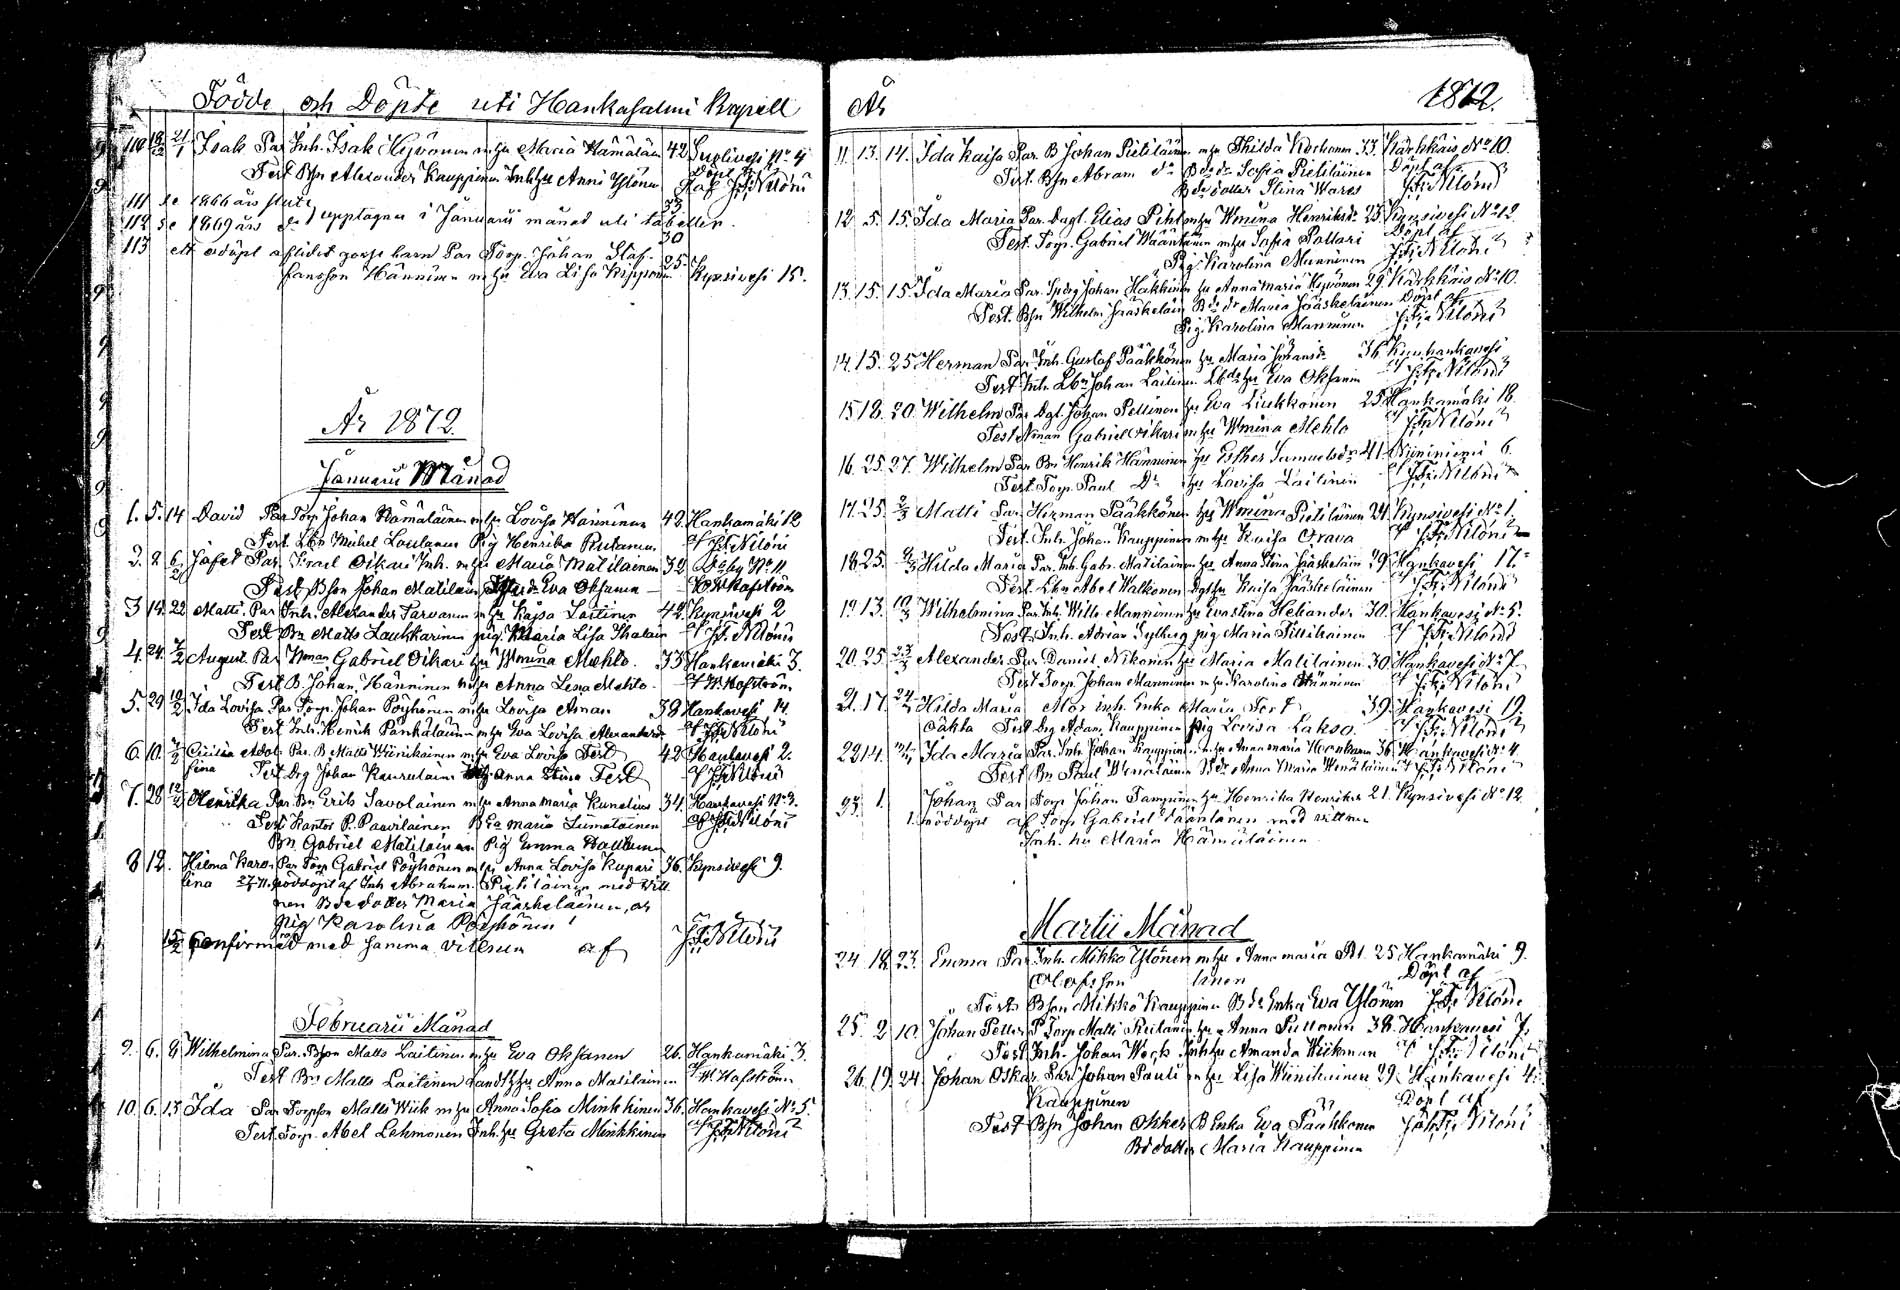 Födde och Döpte uti Hankasalmi Kapell
110 18/12 21/1 Isak Par Inh. Isak Hyvönen m hu Maria Hämäläin 42 Suolivesi No 4
Test Bsn Alexander Kauppinen Inh hu Anni Ylönen Döpt af J.F. Nilóni
111 se 1866 års slute
112 se 1869 års do upptagne i Januarii månad uti tabellen.
113 ett odöpt aflidet gosse barn Par Torp. Johan Staf-
fansson Hänninen m hu Eva Lisa Kipponen 25. Kynsivesi 15.
År 1872.
Januarii Månad
1. 5. 14 David Par Torp Johan Hämäläinen m hu Lovisa Hänninen 42. Hankamäki 12
Test. Lbn Mickel Laulanen Pig Henrika Rutanen af J.F. Nilóni
2. 8 6/2 Jafet Par Israel Oikari Inh. m hu Maria Matilainen 32
Test Bson Johan Matilain Eva Oksanen W. Hofström
3 14. 22 Matti. Par Inh. Alexander Tarvanen m hu Kajsa Laitinen 42 Kynsivesi 2
Test Bn Matts Laukkarinen pig. Maria Lisa af J.F. Nilóni
4. 24. 2/2 August Par Nman Gabriel Oikari hu Wmina Mehlo. 33 Hankamäki 3.
Test B. Johan Hänninen m hu Anna Lena Mehlo. af W. Hofström
5. 29 10/2 Ida Lovisa Par Torp. Johan Pöyhönen m hu Lovisa Aman 38 Hankavesi 14.
Test Inh. Henrik Pänkäläinen m hu Eva Lovisa Alexandersdr af J.F. Nilóni
6. 10. 2/2 Cecilia Adol- Par. B Matts Wiinikainen m hu Eva Lovisa Test 42 Hankavesi 2.
fina Test. Drg Johan hu Anna Stina Test af J.F. Nilóni
7. 28 12/2 Henrika Par Bn Erik Savolainen m hu Anna Maria Kunelius 34. Hankavesi No 3.
Test Kantor P. Paavilainen Bda Maria Liimatainen af J.F. Nilóni
Bn Gabriel Matilainen Pig Emma
8 12. Hilma Karo- Par Torp Gabriel Pöyhönen m hu Anna Lovisa Kupari 36. Kynsivesi 9.
lina nöddöpt af Inh Abraham Pietiläinen med vitt
nen Bdedotter Maria Jääskeläinen, och
pig Karolina Pöyhönen
15/2 Confirmerad med samma vittnen af J.F. Nilóni
Februarii Månad
9. 6. 8 Wilhelmina Par. Bson Matts Laitinen m hu Eva Oksanen 26. Hankamäki 3.
Test Bn Matts Laitinen Landtb hu Anna Matilainen af W. Hofström
10. 6. 13 Ida Par Torpson Matts Wiik m hu Anna Sofia Minkkinen 36. Hankavesi No 5.
Test. Torp. Abel Lehmonen Inh. hu Greta Minkkinen af J.F. Nilóni
År 1872.
11. 13. 14. Ida Kaisa Par. B Johan Pietiläin m hu Thilda Korhonen 33. Kärkkäis No 10.
Test. Bsn Abram do Bde dr Sofia Pietiläinen Döpt af
Bdedotter Stina Wares J.F. Nilóni
12 5. 15. Ida Maria Par. Dagl. Elias Pihl m hu Wmina Henriksdr 23. Kynsivesi No 12.
Test. Torp. Gabriel Wääntänen m hu Sofia Pollari Döpt af
Pig. Karolina Manninen J.F. Nilóni
13. 15. 15. Ida Maria Par. Johan Häkkinen hu Anna Maria Hyvönen 29. Kärkkäis No 10.
Test. Bsn Wilhelm Jääskeläin Bde dr Maria Jääskeläinen Döpt af
Pig. Karolina Manninen J.F. Nilóni
14. 15. 25 Herman Par Inh. Gustaf Pääkkönen hu Maria Johansdr 36 Kuuhankavesi
Test Inh. Lbn Johan Laitinen Lbde hu Eva Oksanen af J.F. Nilóni
15 18. 20. Wilhelm Par Dgl. Johan Pellinen hu Eva Liukkonen 25. Hankamäki 18.
Test Nman Gabriel Oikari m hu Wmina Mehlo af J.F. Nilóni
16. 25. 27. Wilhelm Par Bn Henrik Hänninen hu Esther Samuelsdr 41 Niininiemi 6.
Test. Torp. Paul Do hu Lovisa Laitinen af J.F. Nilóni
17. 25. 2/3 Matti Par Herman Pääkkönen hu Wmina Pietiläinen 24. Kynsivesi No 1.
Test. Inh. Johan Kauppinen m hu Kaisa Orava af J.F. Nilóni
18 25. 2/3 Hilda Maria Par. Inh. Gabr. Matilainen hu Anna Stina Jääskeläin 29. Hankavesi 17.
Test. Lbn Abel Walkonen Dgl hu Kaisa Jääskeläinen af J.F. Nilóni
19 13. 10/3 Wilhelmina Par. Inh. Wilh. Manninen hu Evastina Heliander 30. Hankavesi No 5.
Test. Inh. Adrian Sylberg pig Maria Pillikainen af J.F. Nilóni
20. 25. 23/3 Alexander Par Daniel Nikonen hu Maria Matilainen 30. Hankavesi No 7.
Test Torp. Johan Manninen m hu Karolina Hänninen af J.F. Nilóni
21. 17. 24/3 Hilda Maria Mor inh. Enka Maria Test 39. Hankavesi 19.
oäkta Test Drg Adam Kauppinen pig Lovisa Lakso. af J.F. Nilóni
22 14. Ida Maria Par. Inh. Johan Kauppinen m hu Anna Maria 36. Hankavesi No 4.
Test Bn Paul Wenäläinen Bde Anna Maria Wenäläinen af J.F. Nilóni
23. 1. Johan Par Torp Johan Tamminen hu Henrika Henriksdr 21. Kynsivesi No 12.
nöddöpt af Torp Gabriel Wääntänen med vittnen
Inh. hu Maria Hämäläinen
Martii Månad
24 18. 23. Emma Par Inh. Mikko Ylönen m hu Anna Maria 25 Hankamäki 9.
Olofsson Döpt af
Test. Bson Mikko Kauppinen Bde Enka Eva Ylönen J.F. Nilóni
25. 2 10. Johan Petter P Torp Matti Rutanen hu Anna 38. Hankavesi 7.
Test Inh. Johan Weck Inh hu Amanda Wiikman af J.F. Nilóni
26. 19. 24. Johan Oskar Par Johan Pauli m hu Lisa Wiinikainen 29. Hankavesi 4.
Kauppinen Döpt af
Test Bsn Johan Okker B Enka Eva Pääkkönen J.F. Nilóni
Bdotter Maria Kauppinen